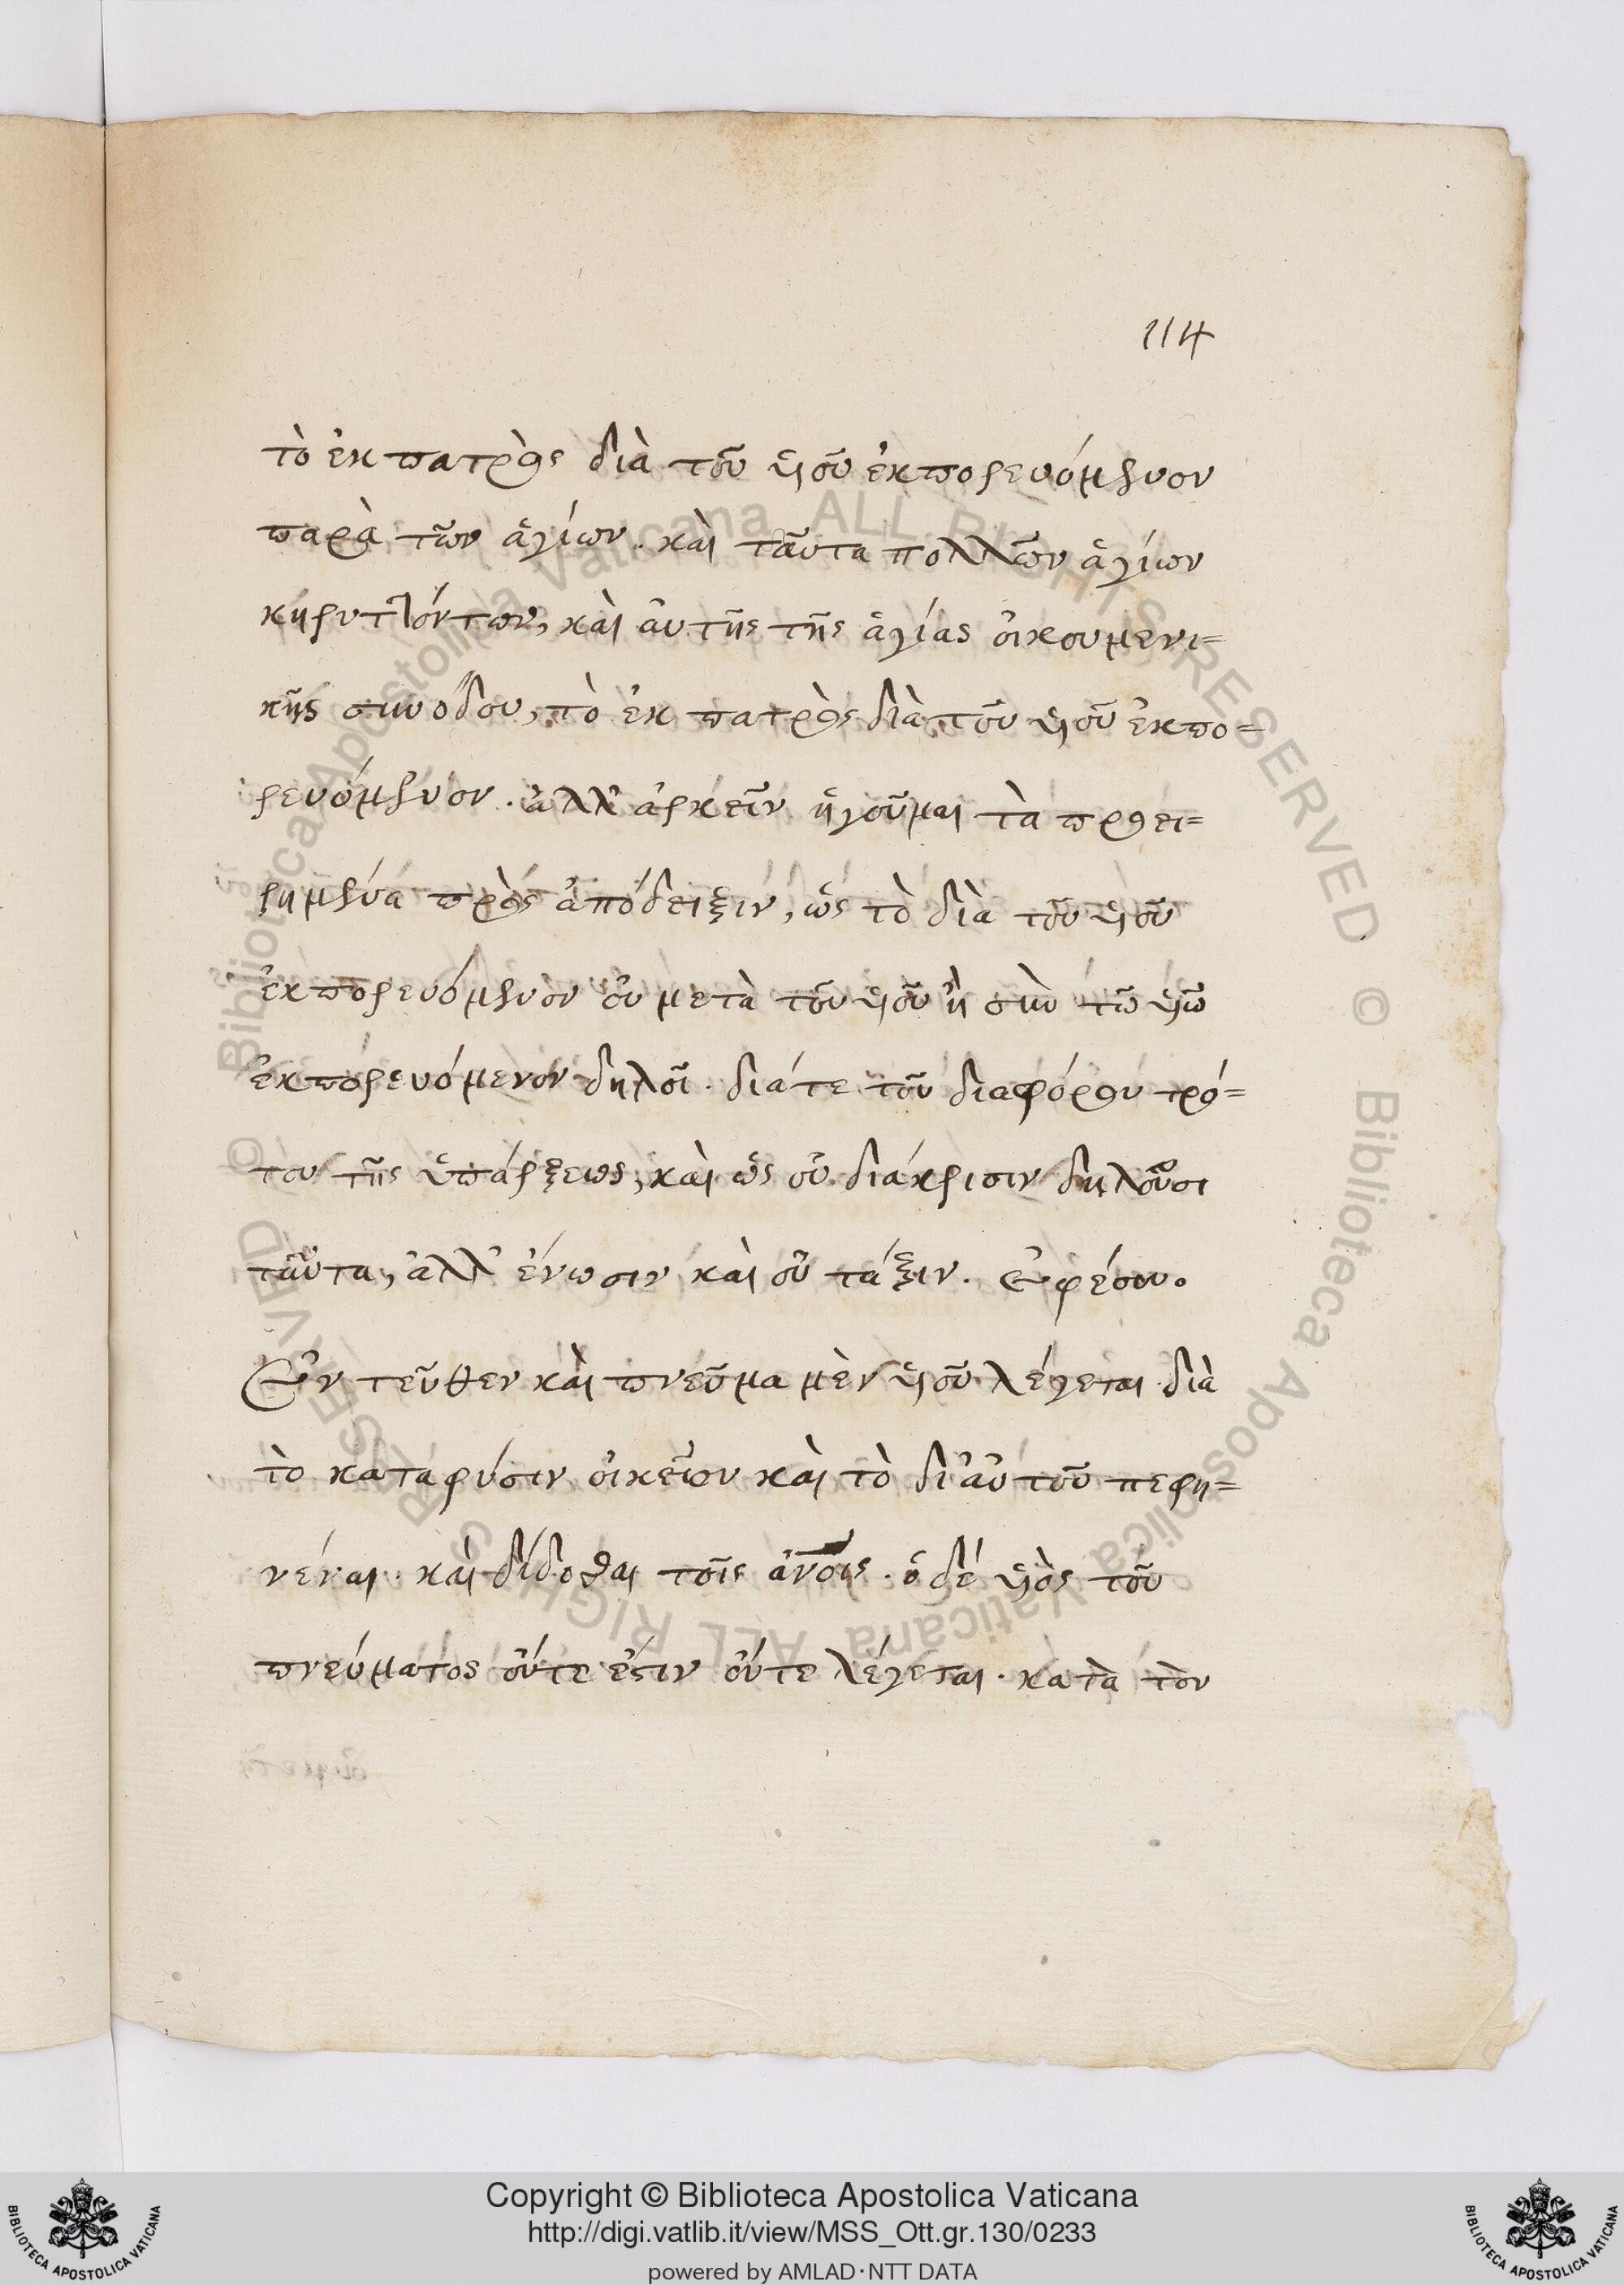 114
τὸ ἐκ πατρὸς διὰ τοῦ ὑιοῦ ἐκπορευόμενον
παρὰ τῶν ἁγίων. καὶ ταῦτα πολλῶν ἁγίων
κηρυττόντων, καὶ ἀυτῆς τῆς ἁγίας ὀικουμενι=
κῆς συνόδου, τὸ ἐκ πατρὸς διὰ τοῦ ὑιοῦ ἐκπο=
ρευόμενον. ἀλλ' ἀρκεῖν ἡγοῦμαι τὰ προει=
ρημένα πρὸς ἀπόδειξιν, ὡς τὸ διὰ τοῦ ὑιοῦ
ἐκπορευόμενον ὀυ μετὰ τοῦ ὑιοῦ ἢ σὺν τῶ ὑιῶ
ἐκπορευόμενον δηλοῖ. διάτε τοῦ διαφόρου τρό=
που τῆς ὑπάρξεως, καὶ ὡς ὀυ διάκρισιν δηλοῦσι
ταῦτα, ἀλλ' ἕνωσιν καὶ ὀυ τάξιν. Ἐφέσου.
Ἐντεῦθεν καὶ πνεῦμα μὲν ὑιοῦ λέγεται διὰ
τὸ καταφύσιν ὀικεῖον καὶ τὸ δι' ἀυτοῦ πεφη=
νέναι. καὶ δίδοσθαι τοῖς ἀνοις. ὁ δέ ὑιὸς τοῦ
πνεύματος ὄυτε ἔστιν ὄυτε λέγεται. κατὰ τὸν
Copyright © Biblioteca Apostolica Vaticana
http://digi.vatlib.it/view/MSS_Ott.gr.130/0233
powered by AMLAD·NTT DATA
BIBLIOTECA APOSTOLICA VATICANA
BIBLIOTECA APOSTOLICA VATICANA
© Biblioteca Apostolica Vaticana ALL RIGHTS RESERVED
© Biblioteca Apostolica Vaticana ALL RIGHTS RESERVED